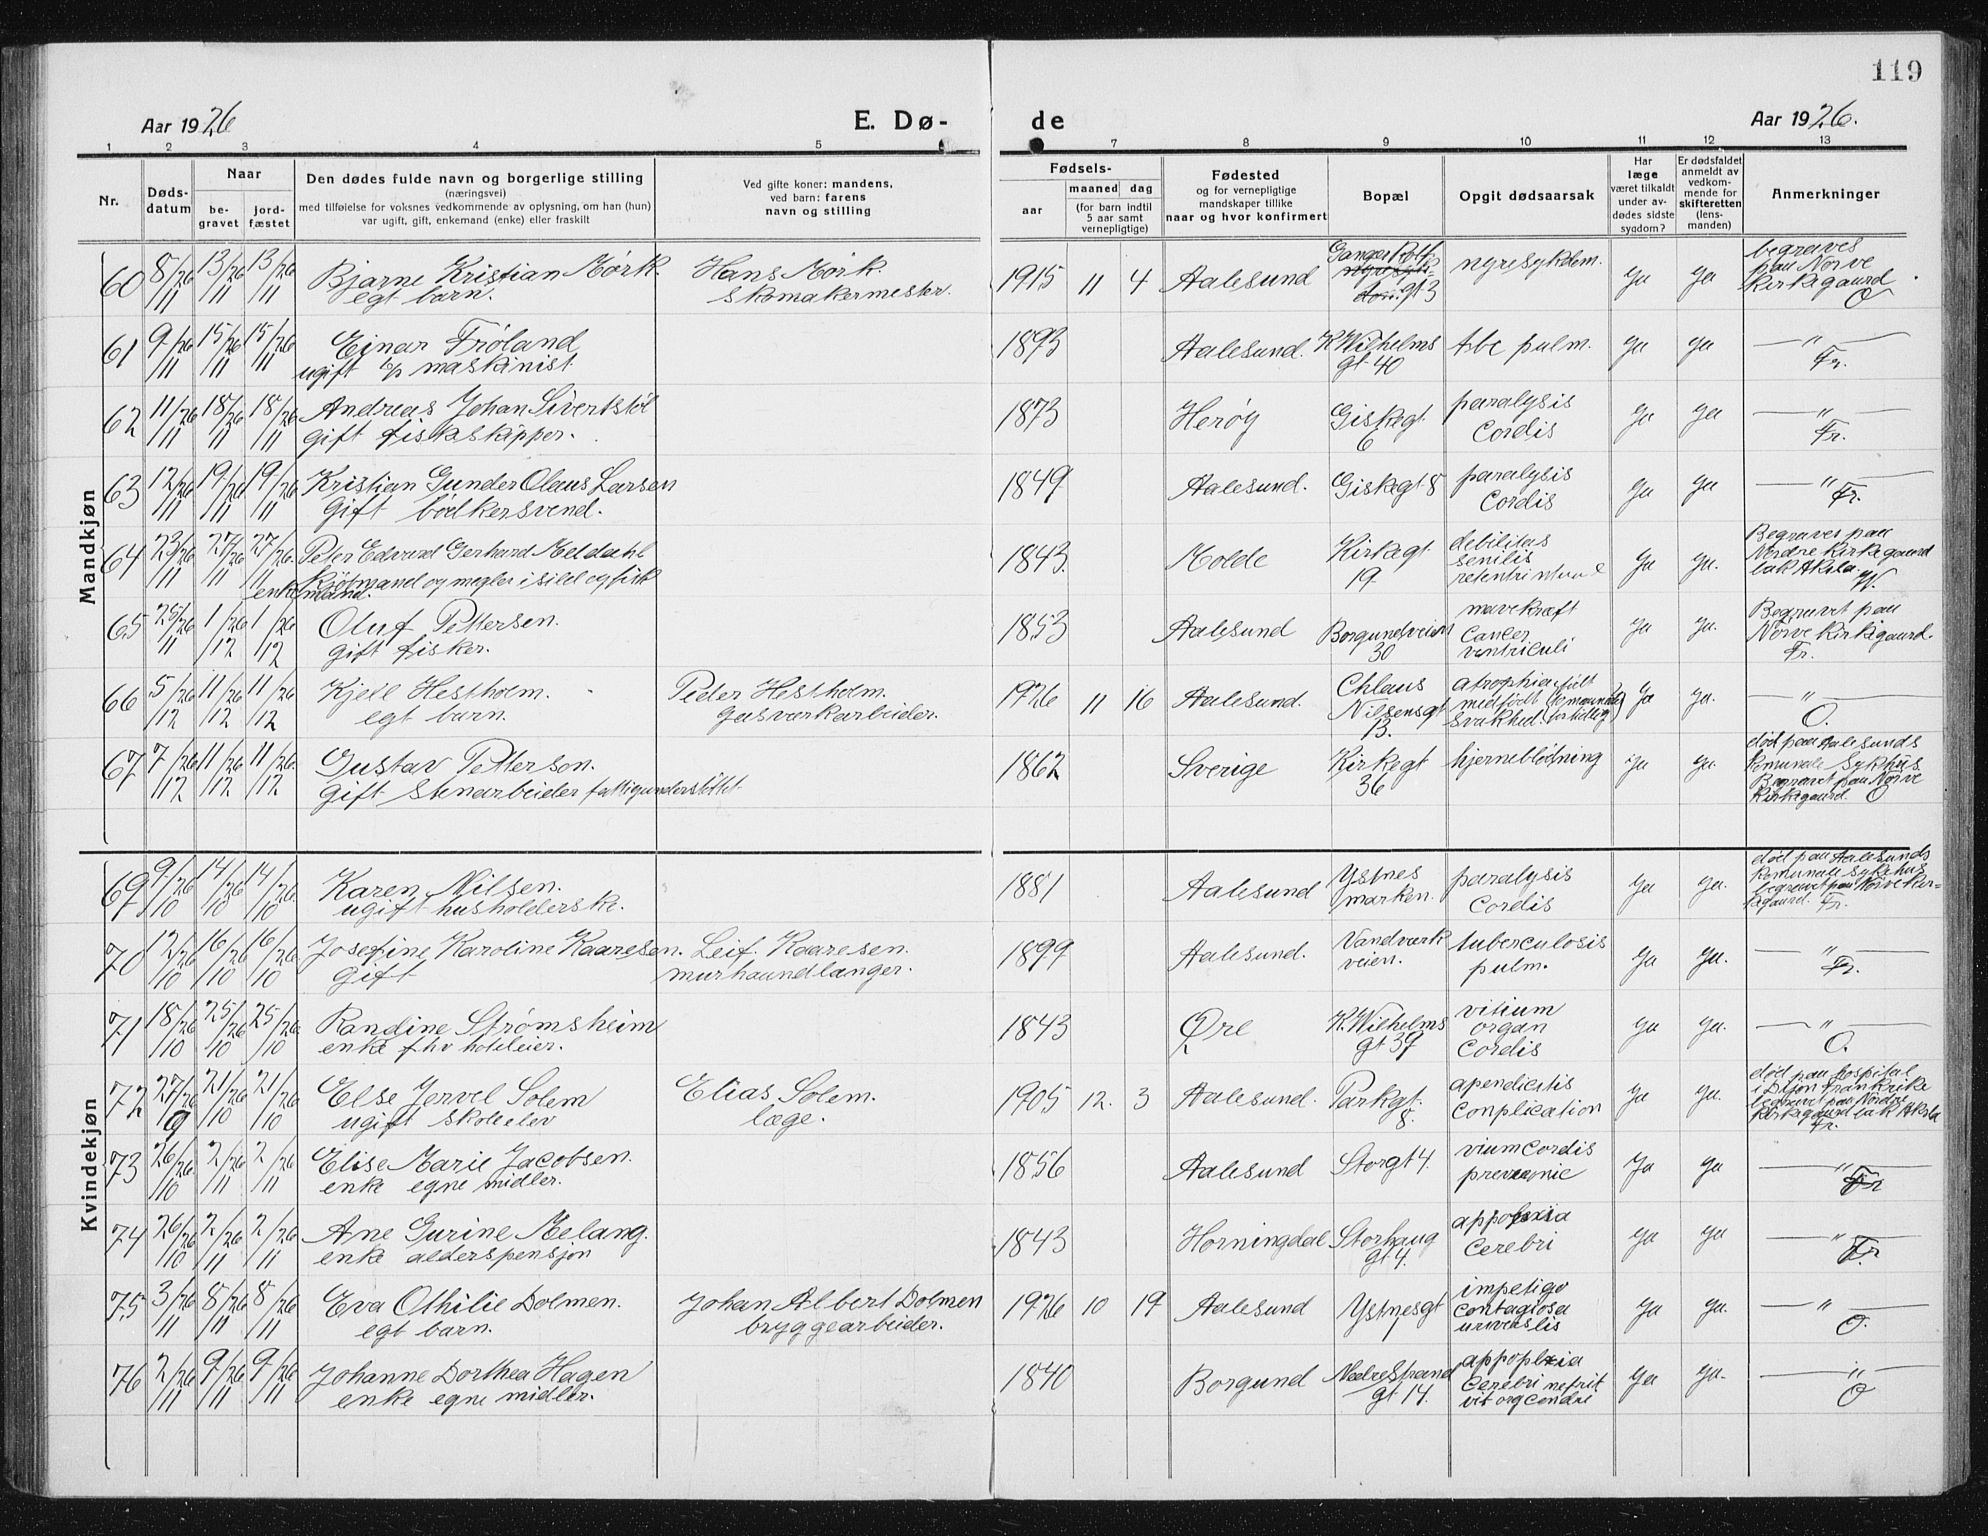 119
Aar 1926
E. Dø-
de
Aar 1926.
1 2 3 4 5 7 8 9 10 11 12 13
Nr.
Døds-
datum
Naar
be-
gravet
jord-
fæstet
Den dødes fulde navn og borgerlige stilling
(næringsvei)
med tilføielse for voksnes vedkommende av oplysning, om han (hun)
var ugift, gift, enkemand (enke) eller fraskilt
Ved gifte koner: mandens,
ved barn: farens
navn og stilling
Fødsels-
aar
maaned dag
(for barn indtil
5 aar samt
vernepligtige)
Fødested
og for vernepligtige
mandskaper tillike
naar og hvor konfirmert
Bopæl
Opgit dødsaarsak
Har
læge
været tilkaldt
under av-
dødes sidste
sygdom?
Er dødsfaldet
anmeldt av
vedkom-
mende for
skifteretten
(lens-
manden)
Anmerkninger
Mandkjøn
60 8/11 26 13/11 26 13/11 26 Bjarne Kristian Mørk. Hans Mørk. 1915 11 4 Aalesund nyresykdom. Ja Ja begraves
egt barn. skomakermester. gt 3 paa Nørve
Kirkegaard
O
61 9/11 26 15/11 26 15/11 26 Einar Frøland 1893 Aalesund. K Wilhelms tbc pulm. Ja Ja — " —
ugift maskinist. gt 40 Fr.
62 11/11 26 18/11 26 18/11 26 Andreas Johan Sivertstøl 1873 Herøy Giskegt. paralysis Ja Ja — " —
gift fiskeskipper. 6 Cordis Fr.
63 12/11 26 19/11 26 19/11 26 Kristian Gunder Olaus Larsen 1849 Aalesund. Giskegt 8 paralysis Ja Ja — " —
gift bødkersvend. Cordis Fr.
64 23/11 26 27/11 26 27/11 26 Peter Edvard Gerhard Meldahl 1843. Molde Kirkegt. debilitas Ja Ja. Begraves paa
Kjøbmand og megler i sild og fisk 19 senilis Nordre Kirkegaard
enkemand. bak Aksla.
65 25/11 26 1/12 26 1/12 26 Oluf Pettersen. 1853 Aalesund Borgundveien mavekræft Ja Ja. Begravet paa
gift fisker. 30 Cancer Nørve Kirkegaard.
ventriculi Fr.
66 5/12 26 11/12 26 11/12 26 Kjell Hestholm. Peder Hestholm. 1926 11 16 Aalesund. Chlaus atrophia Ja Ja. — " —
egt barn. Gasværkarbeider. Nilsensgt medfødt O.
13. svakhed
67 7/12 26 11/12 26 11/12 26 Gustav Petterson. 1862 Sverige Kirkegt hjerneblødning Ja Ja. død paa Aalesunds
gift Stenarbeider fattigunderstøttet. 36 Komunale Sykhus
Begravet paa Nørve
Kirkegaard. O
Kvindekjøn
69 9/10 26 14/10 26 14/10 26 Karen Nilsen. 1881 Aalesund Ystnes paralysis Ja Ja. død paa Aalesunds
ugift husholderske. marken. Cordis Komunale Sykehus
begravet paa Nørve Kir-
kegaard. Fr.
70 12/10 26 16/10 26 16/10 26 Josefine Karoline Kaaresen. Leif. Kaaresen. 1899 Aalesund. Vandværk tuberculosis Ja Ja. — " —
gift murhaandlanger. veien. pulm. Fr.
71 18/10 26 25/10 26 25/10 26 Randine Strømsheim 1843 Øre K. Wilhelms vitium Ja Ja. — " —
enke fhv hoteleier. gt 39 organ O.
Cordis
72 27/9 26 21/10 26 21/10 26 Else Jorvel Solem Elias Solem. 1905 12. 3 Aalesund. Parkgt. apendicitis Ja Ja. død paa hospital
ugift skoleelev læge. 8. Conplication i Dijon Frankrike
begravet paa Nordre
Kirkegaard bak Aksla
Fr.
73 26/10 26 2/11 26 2/11 26 Elise Marie Jacobsen. 1856 Aalesund Storgt 4. vium Cordis Ja Ja — " —
enke egne midler. Fr
74 26/10 26 2/11 26 2/11 26 Ane Gurine Melang. 1843 Horningdal Storhaug appoplexia Ja Ja — " —
enke alderspensjon gt 4. Cerebri Fr
75 3/11 26 8/11 26 8/11 26 Eva Othilie Dolmen. Johan Albert Dolmen 1926 10 19 Aalesund Ystnesgt impetigo Ja Ja. — " —
egt barn. bryggearbeider. 1 contagiosa O.
76 2/11 26 9/11 26 9/11 26 Johanne Dorthea Hagen 1840 Borgund Nedre Strand appoplexia Ja Ja. — " —
enke egne midler. gt 14. Cerebri nefrit O